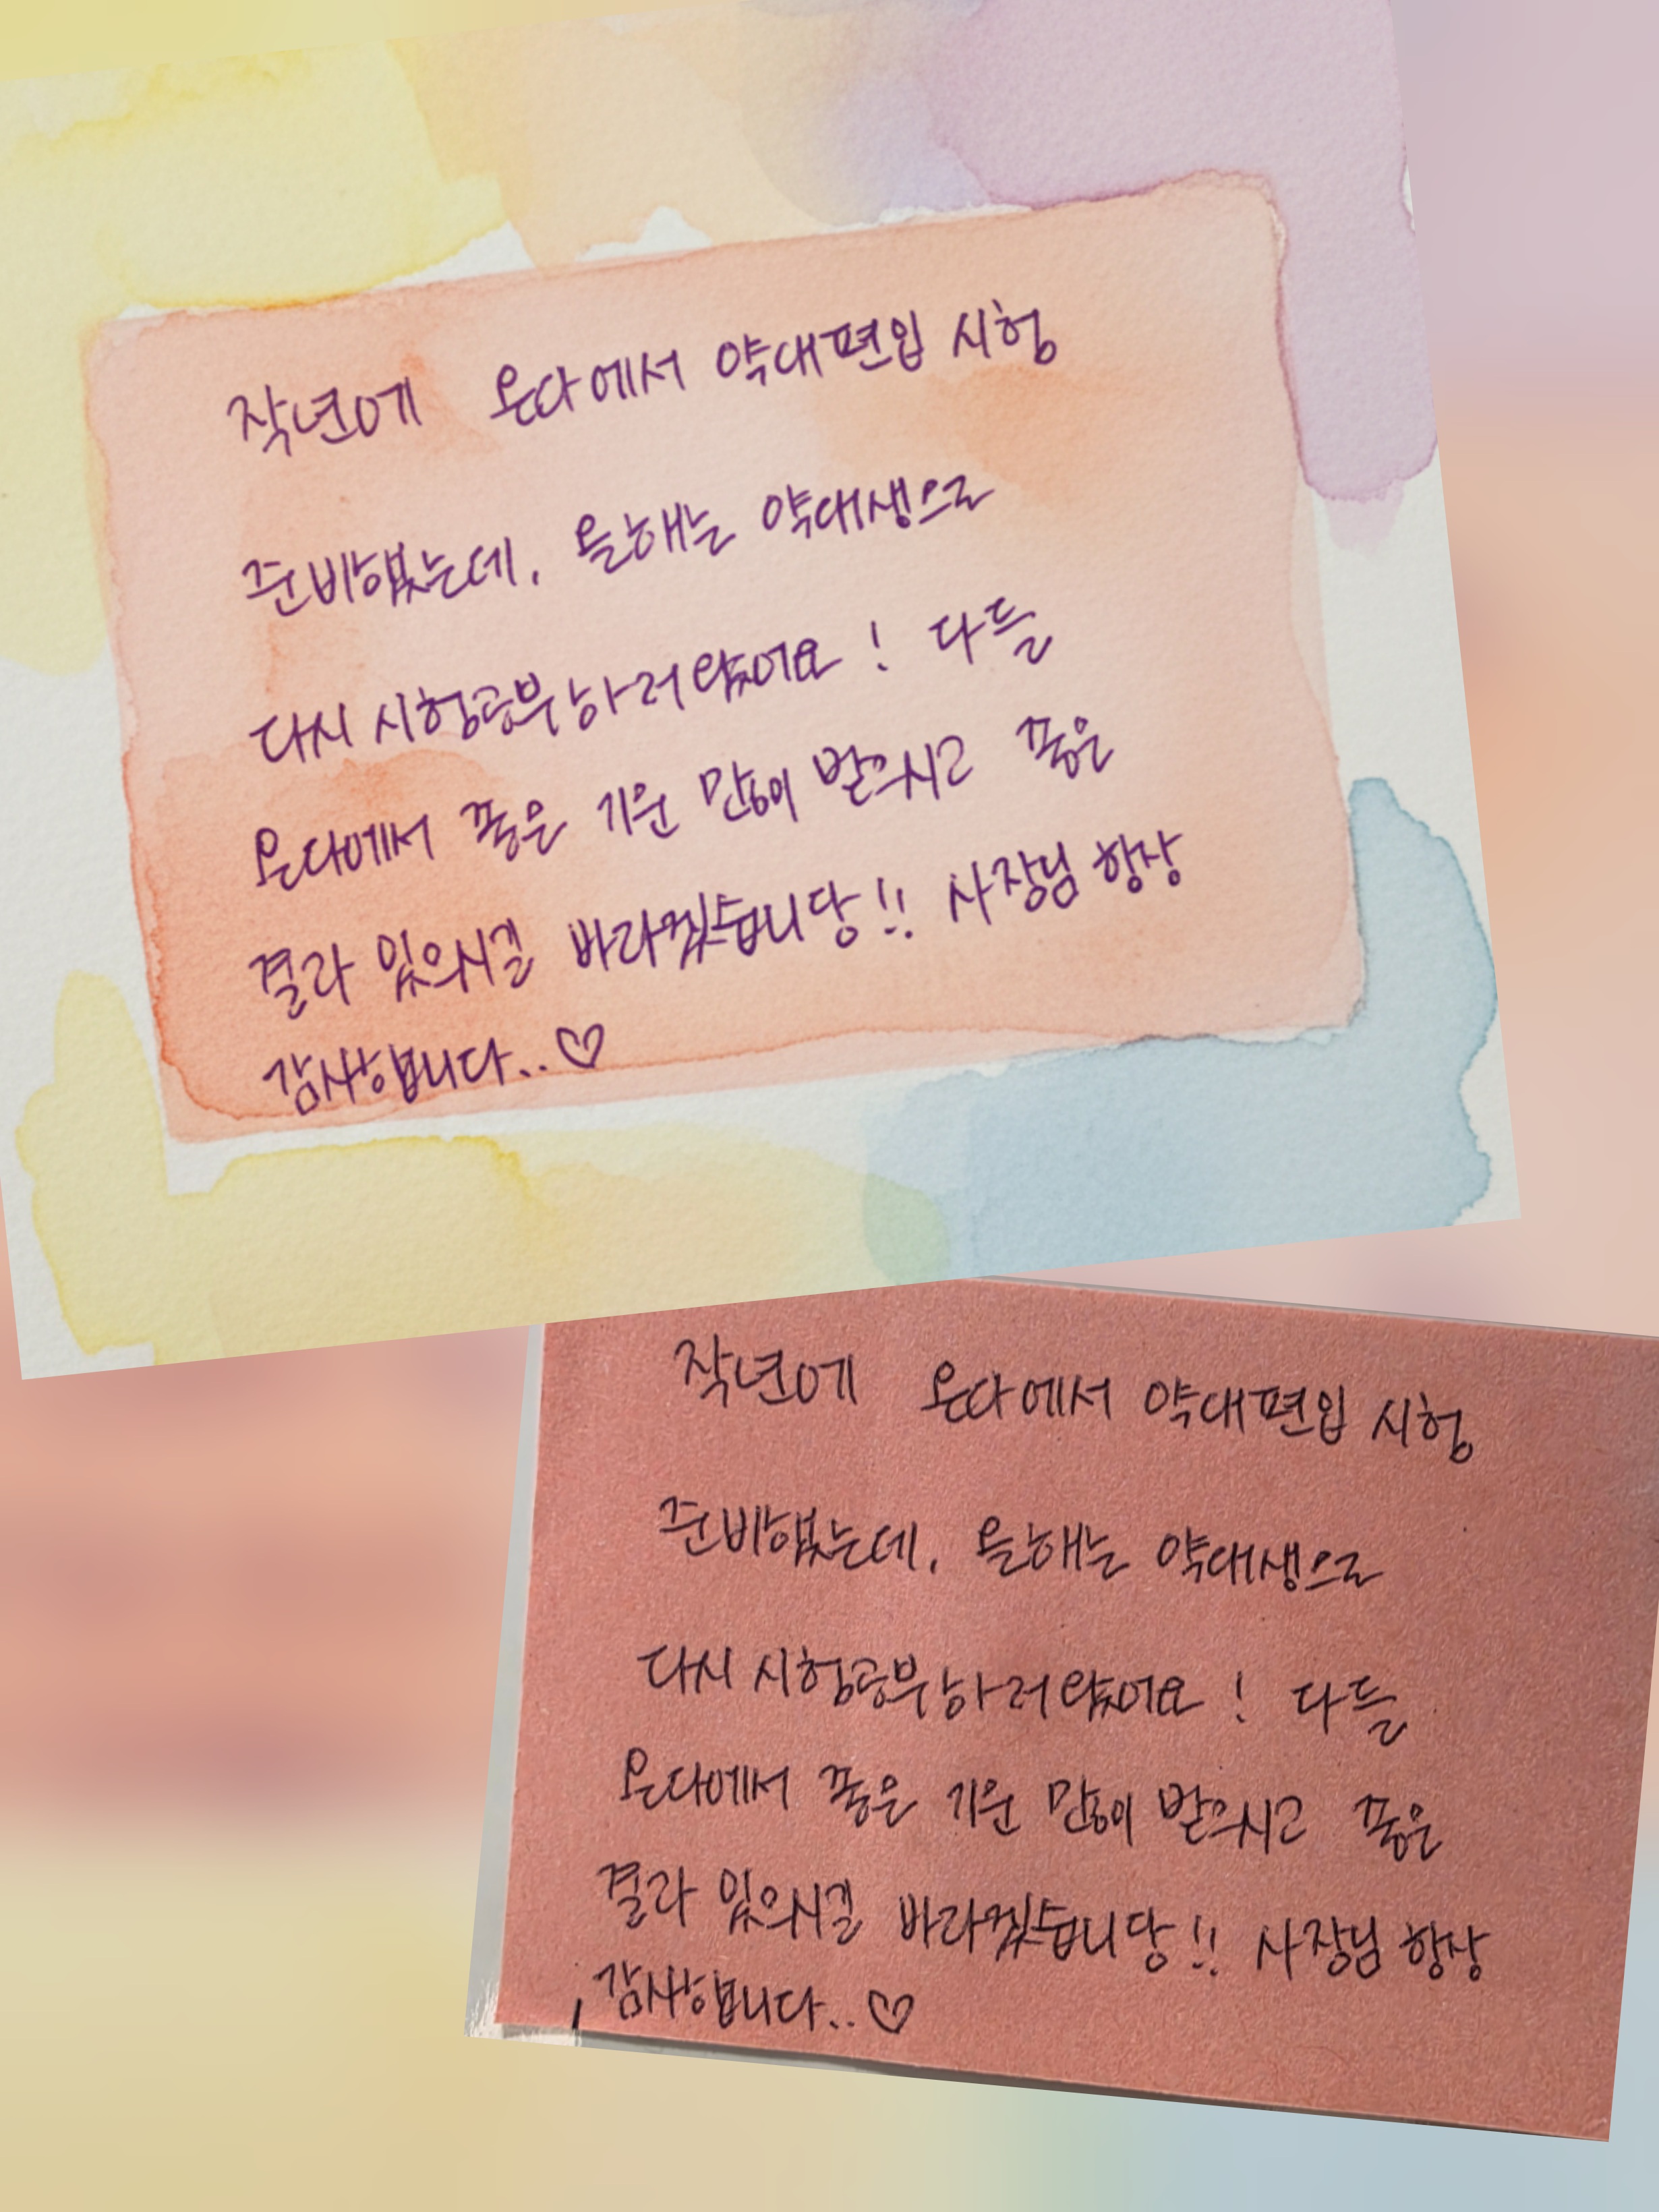 작년에 온다에서 약대편입 시험
준비했는데, 올해는 약대생으로
다시 시험공부하러 왔어요! 다들
온다에서 좋은 기운 많이 받으시고 좋은
결과 있으시길 바라겠습니당!! 사장님 항상
감사합니다..♡
작년에 온다에서 약대편입 시험
준비했는데, 올해는 약대생으로
다시 시험공부하러 왔어요! 다들
온다에서 좋은 기운 많이 받으시고 좋은
결과 있으시길 바라겠습니당!! 사장님 항상
감사합니다..♡